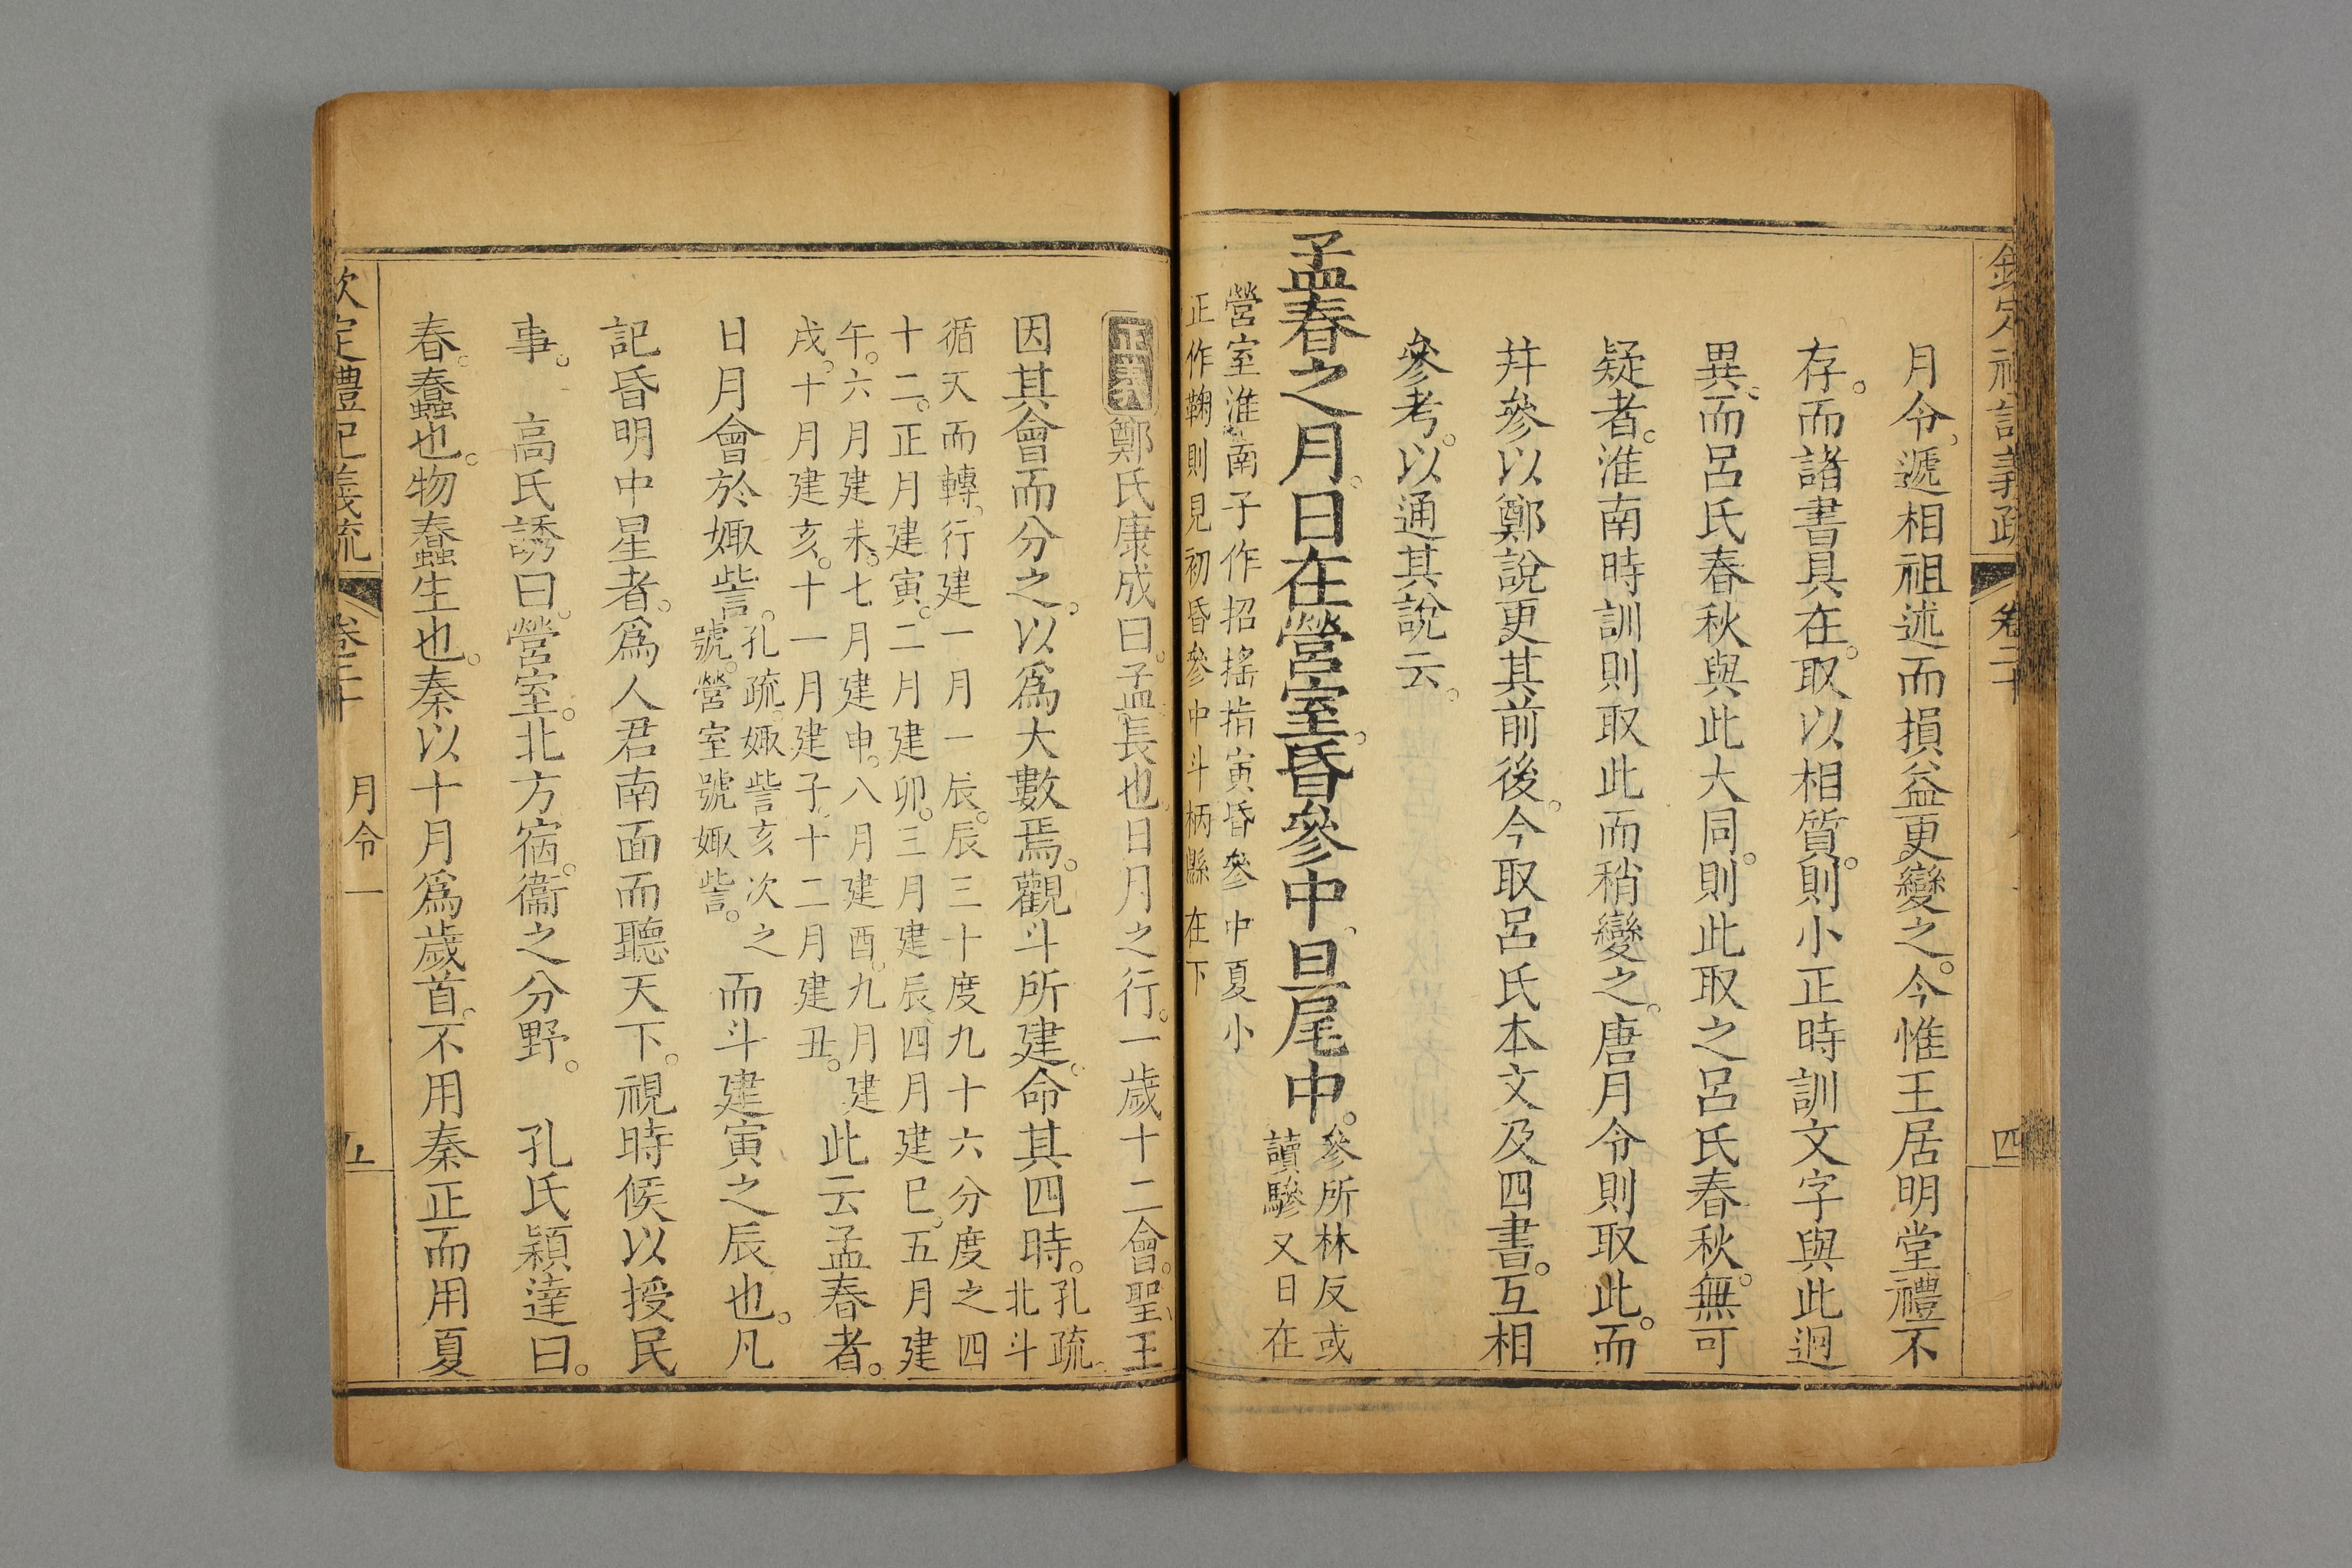 欽定禮記義疏 卷二十 四
月令遞相祖述而損益更變之。今惟王居明堂禮不
存。而諸書具在。取以相質。則小正時訓文字與此迥
異。而呂氏春秋與此大同。則此取之呂氏春秋。無可
疑者。淮南時訓則取此而稍變之。唐月令則取此。而
幷參以鄭說更其前後。今取呂氏本文及四書。互相
參考。以通其說云。
孟春之月。日在營室。昏參中。旦尾中。
參所林反或
讀驂又日在
營室淮南子作招搖指寅昏參中夏小
正作鞠則見初昏參中斗柄縣在下
正義鄭氏康成曰。孟。長也。日月之行。一歲十二會。聖王
因其會而分之。以爲大數焉。觀斗所建。命其四時。
孔疏。
北斗
循天而轉。行建一月一辰。辰三十度九十六分度之四
十二。正月建寅。二月建卯。三月建辰。四月建巳。五月建
午。六月建未。七月建申。八月建酉。九月建
戌。十月建亥。十一月建子。十二月建丑。
此云孟春者。
日月會於娵訾。
孔疏。娵訾亥次之
號。營室號娵訾。
而斗建寅之辰也。凡
記昏明中星者。爲人君南面而聽天下。視時候以授民
事。 高氏誘曰。營室。北方宿。衞之分野。 孔氏穎達曰。
春。蠢也。物蠢生也。秦以十月爲歲首。不用秦正而用夏
欽定禮記義疏 卷二十 月令一 五